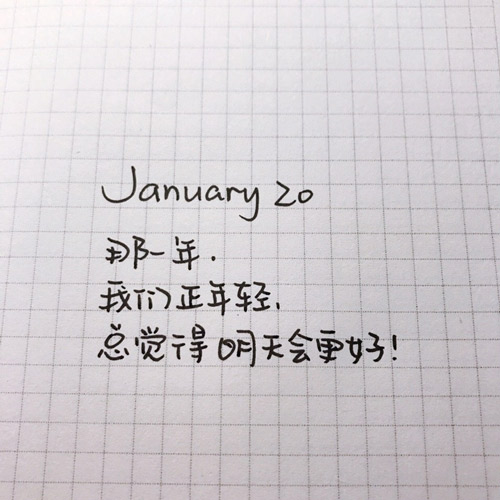 January 20
那一年.
我们正年轻,
总觉得明天会更好!